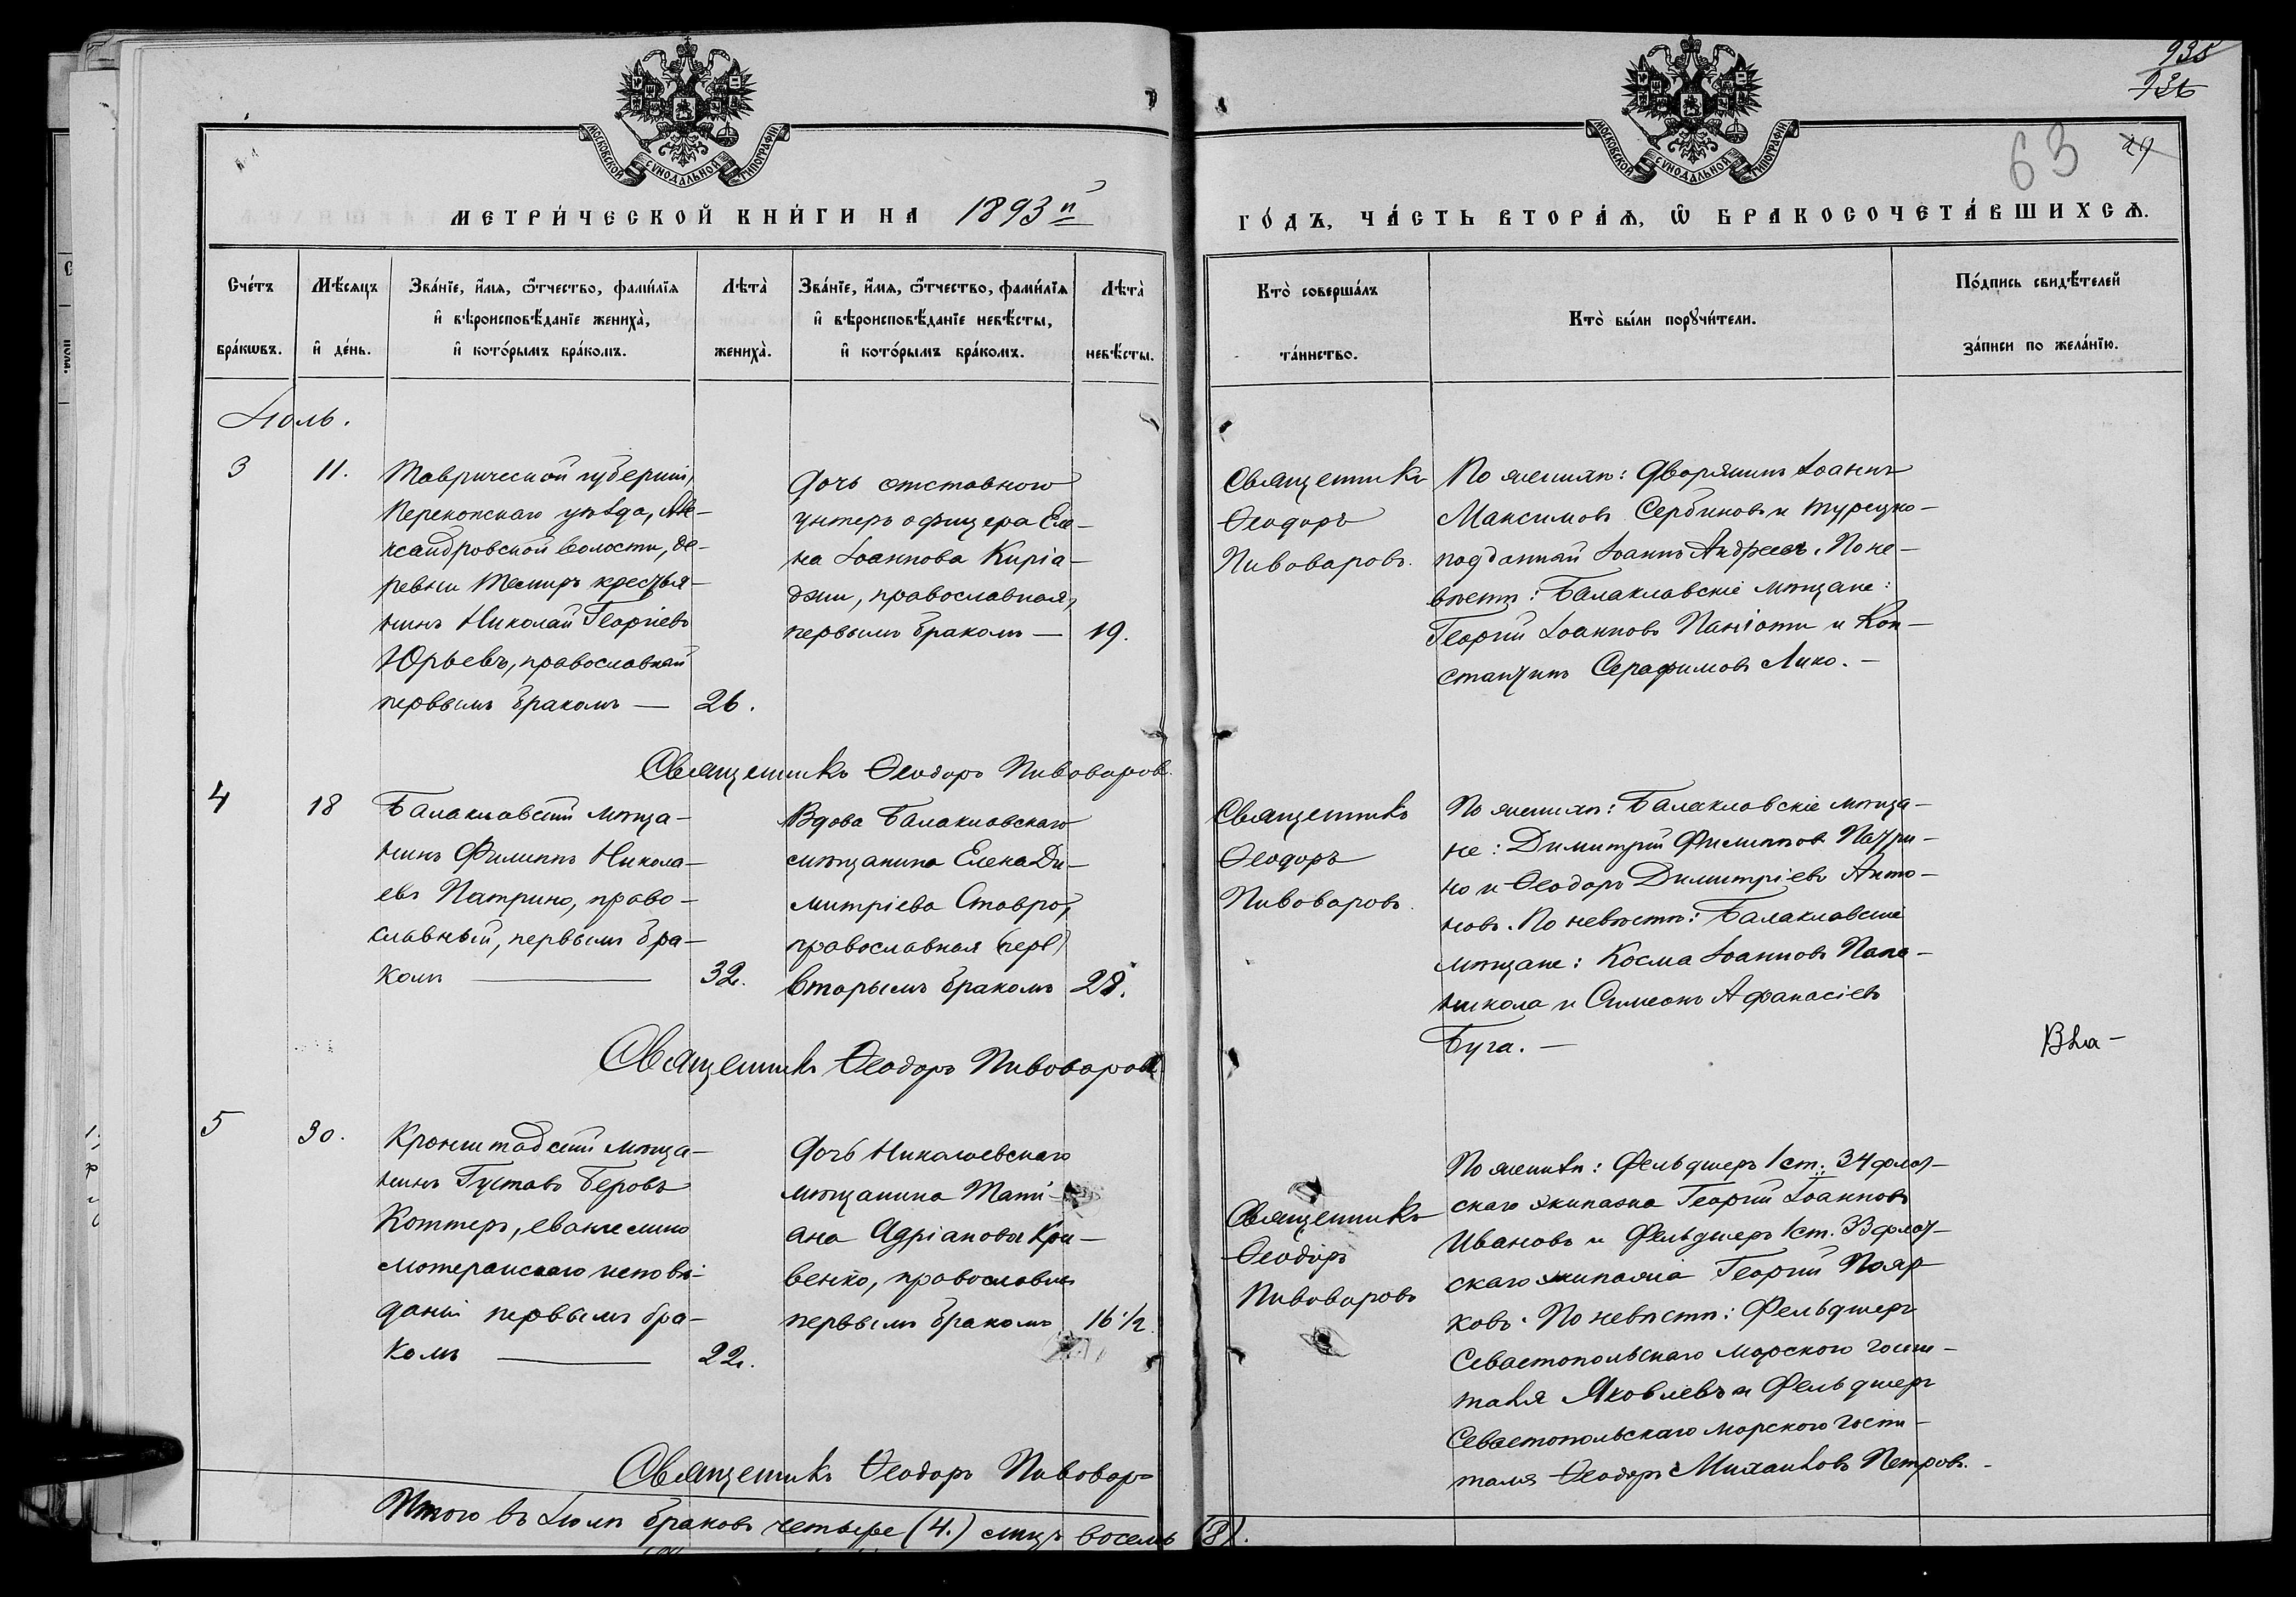 935
936
63
29
МОСКОВСКОЙ СѴНОДАЛЬНОЙ ТИПОГРАФІИ
МОСКОВСКОЙ СѴНОДАЛЬНОЙ ТИПОГРАФІИ
МЕТРИ́ЧЕСКОЙ КНИ́ГИ НА 1893й
ГО́ДЪ, ЧА́СТЬ ВТОРА́Ѧ, Ѿ БРАКОСОЧЕТА́ВШИХСѦ.
Сче́тъ бра́кѡвъ.
Мѣ́сѧцъ и҆ де́нь.
Зва́нїе, и҆́мѧ, ѻ҆́тчество, фами́лїѧ
и҆ вѣроисповѣ́данїе жениха̀,
и҆ кото́рымъ бра́комъ.
Лѣта̀ жениха̀.
Зва́нїе, и҆́мѧ, ѻ҆́тчество, фами́лїѧ
и҆ вѣроисповѣ́данїе невѣ́сты,
и҆ кото́рымъ бра́комъ.
Лѣта̀ невѣ́сты.
Кто̀ соверша́лъ
та́инство.
Кто̀ бы́ли порꙋчи́тели.
По́дпись свидѣ́телей
за́писи по жела́нїю.
Іюль.
3
11.
Таврической губерніи,
Перекопскаго уѣзда, Але-
ксандровской волости, де-
ревни Темиръ крестья-
нинъ Николай Георгіевъ
Юрьевъ, православный
первымъ бракомъ — 26.
Дочь отставного
унтеръ офицера Еле-
на Іоаннова Киріа-
джи, православная,
первымъ бракомъ — 19.
Священникъ
Ѳеодоръ
Пивоваровъ.
По женихѣ: Дворянинъ Іоаннъ
Максимовъ Сербиновъ и турецко-
подданный Іоаннъ Андреевъ. По не-
вѣстѣ: Балаклавскіе мѣщане:
Георгій Іоанновъ Паніоти и Кон-
стантинъ Серафимовъ Лико. —
Священникъ Ѳеодоръ Пивоваровъ.
4
18
Балаклавскій мѣща-
нинъ Филиппъ Никола-
евъ Патрино, право-
славный, первымъ бра-
комъ — 32.
Вдова Балаклавскаго
мѣщанина Елена Ди-
митріева Ставро,
православная (перв)
вторымъ бракомъ 28.
Священникъ
Ѳеодоръ
Пивоваровъ.
По женихѣ: Балаклавскіе мѣща-
не: Димитрій Филипповъ Патри-
но и Ѳеодоръ Димитріевъ Анто-
новъ. По невѣстѣ: Балаклавскіе
мѣщане: Косма Іоанновъ Папа-
никола и Симеонъ Афанасіевъ
Буга. —
Священникъ Ѳеодоръ Пивоваровъ
5
30.
Кронштадскій мѣща-
нинъ Густавъ Беровъ
Коттеръ, евангелико
лютеранскаго исповѣ-
данія первымъ бра-
комъ — 22.
Дочь Николаевскаго
мѣщанина Тати-
ана Адріанова Кри-
венко, православная
первымъ бракомъ 16 1/2
Священникъ
Ѳеодоръ
Пивоваровъ
По женихѣ: Фельдшеръ 1 ст. 34 флот-
скаго экипажа Георгій Іоанновъ
Ивановъ и Фельдшеръ 1 ст. 33 флот-
скаго экипажа Георгій Пояр-
ковъ. По невѣстѣ: Фельдшеръ
Севастопольскаго морского госпи-
таля Яковлевъ и Фельдшеръ
Севастопольскаго морского госпи-
таля Ѳеодоръ Михаиловъ Петровъ. -
Священникъ Ѳеодоръ Пивовар=
Итого въ Іюлѣ браковъ четыре (4.) лицъ восемь (8).